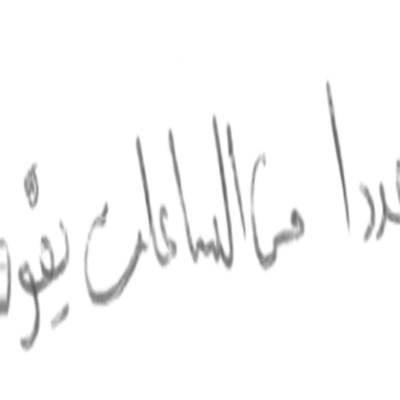 عددا من الساعات يفوق